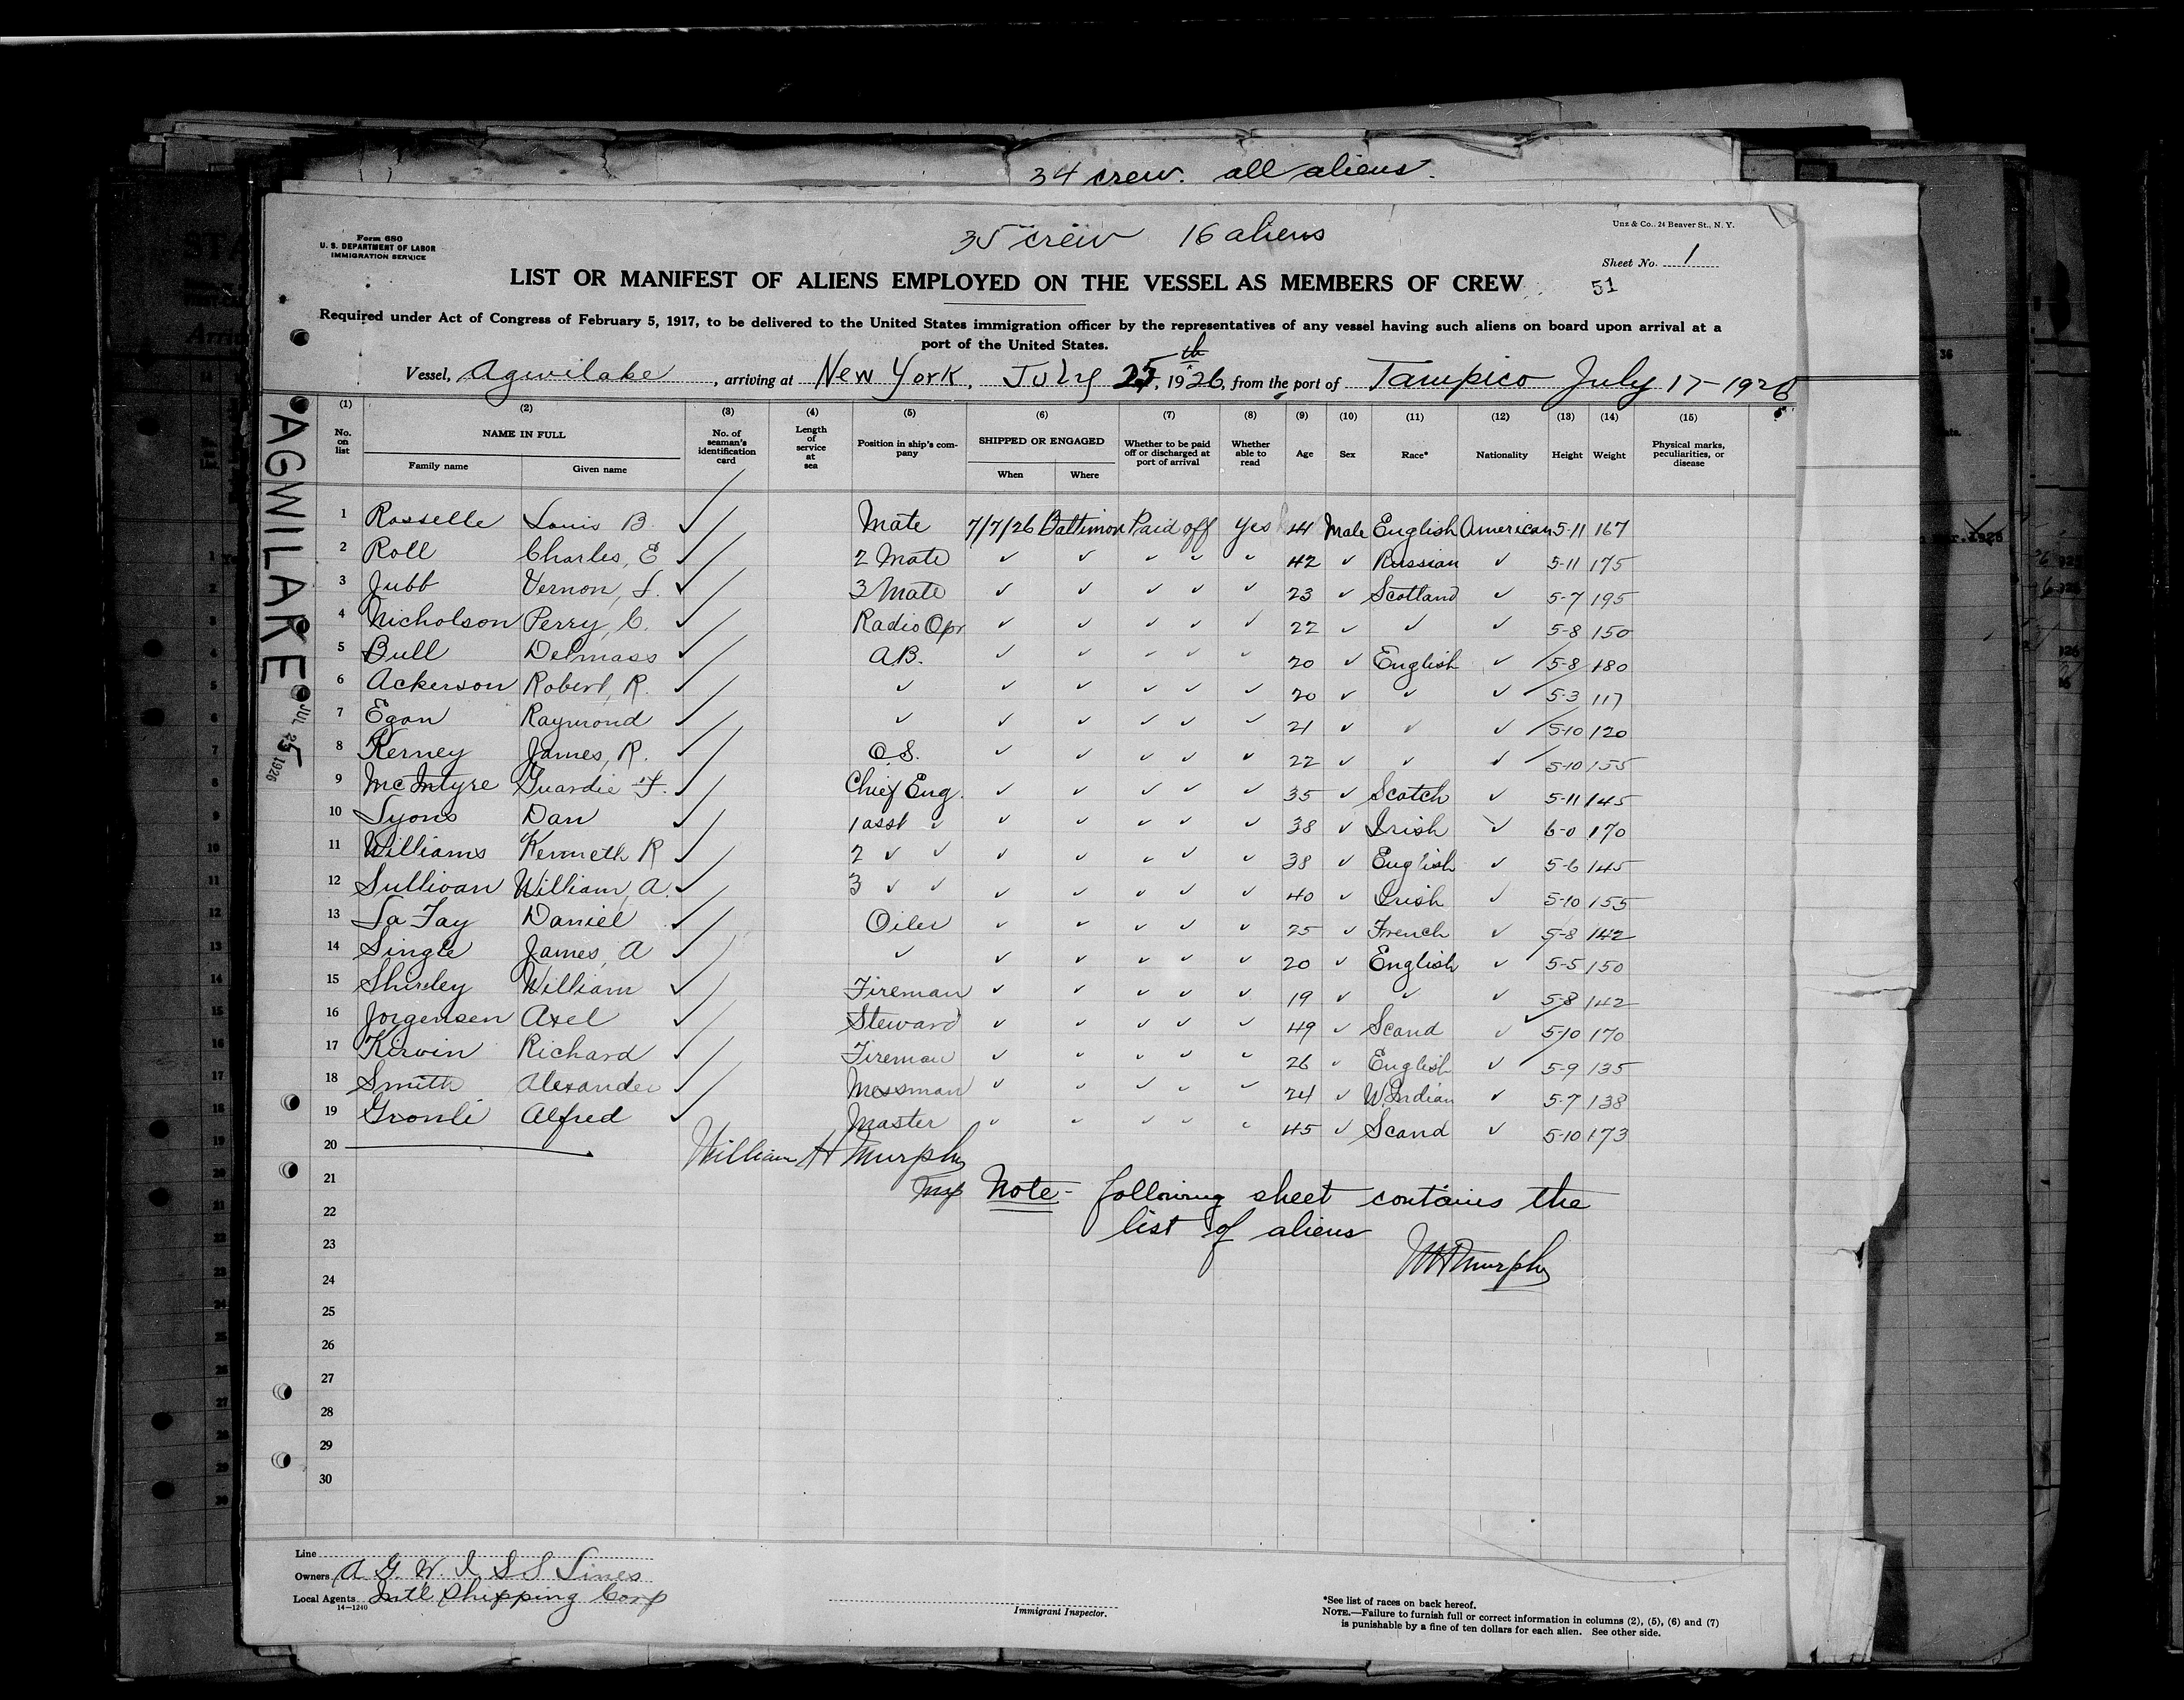 34 crew. all aliens.
35 crew 16 aliens
Unz & Co., 24 Beaver St., N. Y.
Form 680
U. S. DEPARTMENT OF LABOR
IMMIGRATION SERVICE
Sheet No. 1
LIST OR MANIFEST OF ALIENS EMPLOYED ON THE VESSEL AS MEMBERS OF CREW
51
Required under Act of Congress of February 5, 1917, to be delivered to the United States immigration officer by the representatives of any vessel having such aliens on board upon arrival at a
port of the United States.
Vessel, Agwilake, arriving at New York, July 25th, 1926, from the port of Tampico July 17-1926
AGWILAKE
JUL 25 1926
(1) (2) (3) (4) (5) (6) (7) (8) (9) (10) (11) (12) (13) (14) (15)
No. on list
NAME IN FULL
Family name Given name
No. of seaman's identification card
Length of service at sea
Position in ship's company
SHIPPED OR ENGAGED
When Where
Whether to be paid off or discharged at port of arrival
Whether able to read
Age Sex Race* Nationality Height Weight
Physical marks, peculiarities, or disease
1 Rosselle Louis B. ✓ Mate 7/7/26 Baltimore Paid off Yes 44 Male English American 5-11 167
2 Roll Charles, E ✓ 2 Mate ✓ ✓ ✓ ✓ ✓ 42 ✓ Russian ✓ 5-11 175
3 Jubb Vernon, L. ✓ 3 Mate ✓ ✓ ✓ ✓ ✓ 23 ✓ Scotland ✓ 5-7 195
4 Nicholson Perry, C. ✓ Radio Opr ✓ ✓ ✓ ✓ ✓ 22 ✓ ✓ ✓ 5-8 150
5 Bull Delmass ✓ A.B. ✓ ✓ ✓ ✓ ✓ 20 ✓ English ✓ 5-8 180
6 Ackerson Robert, R. ✓ ✓ ✓ ✓ ✓ ✓ ✓ 20 ✓ ✓ ✓ 5-3 117
7 Egan Raymond ✓ ✓ ✓ ✓ ✓ ✓ ✓ 21 ✓ ✓ ✓ 5-10 120
8 Kerney James, R. ✓ O.S. ✓ ✓ ✓ ✓ ✓ 22 ✓ ✓ ✓ 5-10 155
9 McIntyre Guardie F. ✓ Chief Eng. ✓ ✓ ✓ ✓ ✓ 35 ✓ Scotch ✓ 5-11 145
10 Lyons Dan ✓ 1 asst ✓ ✓ ✓ ✓ ✓ ✓ 38 ✓ Irish ✓ 6-0 170
11 Williams Kenneth R ✓ 2 ✓ ✓ ✓ ✓ ✓ ✓ ✓ 38 ✓ English ✓ 5-6 145
12 Sullivan William, A. ✓ 3 ✓ ✓ ✓ ✓ ✓ ✓ ✓ 40 ✓ Irish ✓ 5-10 155
13 La Fay Daniel ✓ Oiler ✓ ✓ ✓ ✓ ✓ 25 ✓ French ✓ 5-8 142
14 Single James, A ✓ ✓ ✓ ✓ ✓ ✓ ✓ 20 ✓ English ✓ 5-5 150
15 Shirley William ✓ Fireman ✓ ✓ ✓ ✓ ✓ 19 ✓ ✓ ✓ 5-8 142
16 Jorgensen Axel ✓ Steward ✓ ✓ ✓ ✓ ✓ 49 ✓ Scand ✓ 5-10 170
17 Kirwin Richard ✓ Fireman ✓ ✓ ✓ ✓ ✓ 26 ✓ English ✓ 5-9 135
18 Smith Alexander ✓ Messman ✓ ✓ ✓ ✓ ✓ 24 ✓ W. Indian ✓ 5-7 138
19 Gronli Alfred ✓ Master ✓ ✓ ✓ ✓ ✓ 45 ✓ Scand ✓ 5-10 173
20 William H Murphy
21 Insp Note - following sheet contains the
22 list of aliens
23 WH Murphy
24
25
26
27
28
29
30
Line
Owners A. G. W. I. S S Lines
Local Agents Int'l Shipping Corp
14—1240
Immigrant Inspector.
*See list of races on back hereof.
NOTE.—Failure to furnish full or correct information in columns (2), (5), (6) and (7)
is punishable by a fine of ten dollars for each alien. See other side.